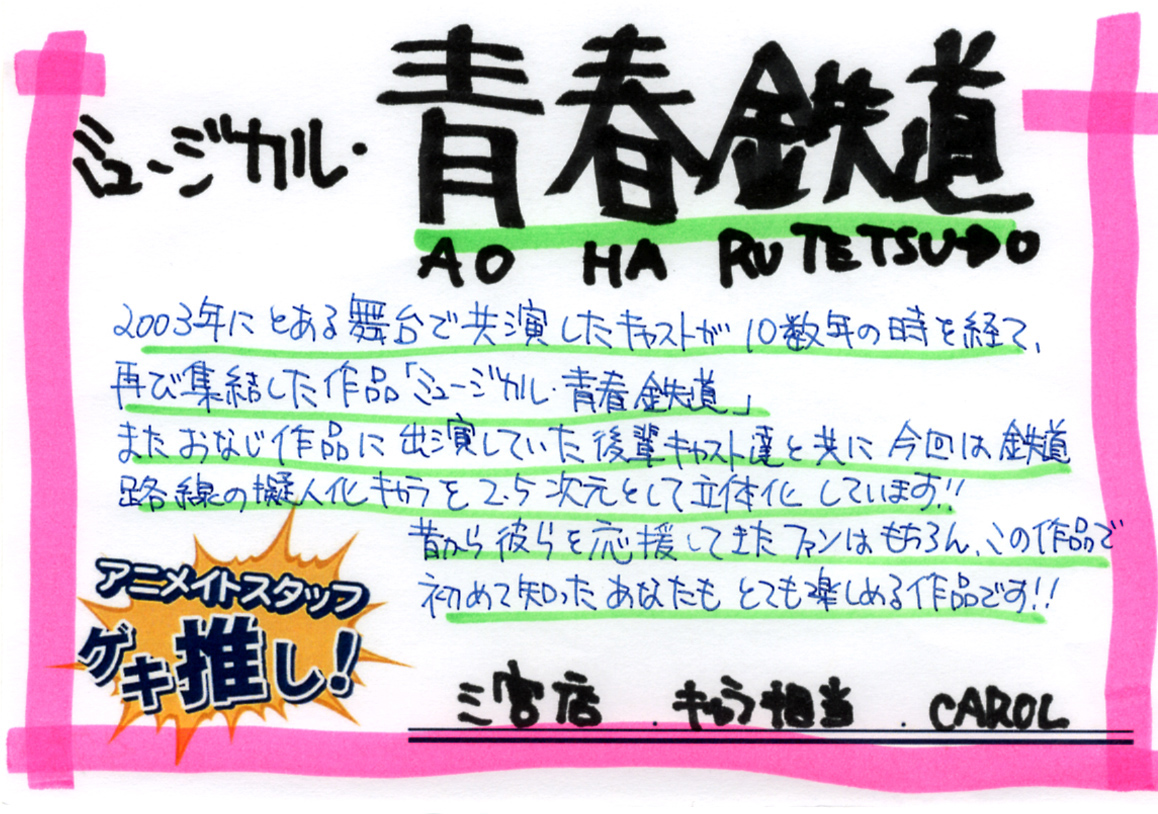 ミュージカル・青春鉄道
AO HA RU TETSUDO
2003年にとある舞台で共演したキャストが10数年の時を経て、
再び集結した作品「ミュージカル・青春鉄道」
またおなじ作品に出演していた後輩キャスト達と共に今回は鉄道
路線の擬人化キャラを2.5次元として立体化しています!!
昔から彼らを応援してきたファンはもちろん、この作品で
初めて知ったあなたもとても楽しめる作品です!!
アニメイトスタッフ
ゲキ推し!
三宮店．キャラ担当．CAROL